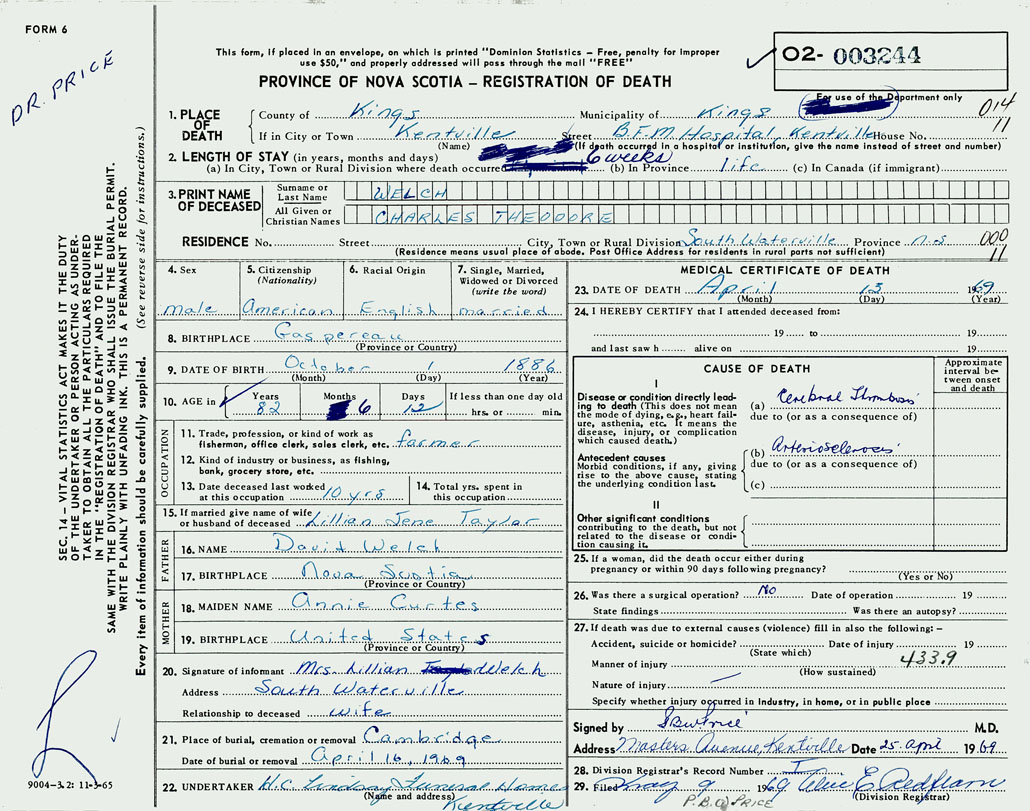 FORM 6
DR. PRICE
This form, if placed in an envelope, on which is printed "Dominion Statistics – Free, penalty for improper
use $50," and properly addressed will pass through the mail "FREE"
PROVINCE OF NOVA SCOTIA – REGISTRATION OF DEATH
✓ 02- 003244
For use of the Department only
014
11
1. PLACE OF DEATH
County of Kings Municipality of Kings
If in City or Town Kentville Street B.F.M. Hospital, Kentville House No.
(Name) (If death occurred in a hospital or institution, give the name instead of street and number)
2. LENGTH OF STAY (in years, months and days)
(a) In City, Town or Rural Division where death occurred 6 weeks (b) In Province life (c) In Canada (if immigrant)
3. PRINT NAME OF DECEASED
Surname or Last Name WELCH
All Given or Christian Names CHARLES THEODORE
RESIDENCE No. Street City, Town or Rural Division South Waterville Province N.S. 000
11
(Residence means usual place of abode. Post Office Address for residents in rural parts not sufficient)
4. Sex
male
5. Citizenship
(Nationality)
American
6. Racial Origin
English
7. Single, Married,
Widowed or Divorced
(write the word)
married
8. BIRTHPLACE Gaspereau
(Province or Country)
9. DATE OF BIRTH October 1 1886
(Month) (Day) (Year)
10. AGE in ✓ Years Months Days If less than one day old
82 6 12 hrs. or min.
OCCUPATION
11. Trade, profession, or kind of work as
fisherman, office clerk, sales clerk, etc. farmer
12. Kind of industry or business, as fishing,
bank, grocery store, etc.
13. Date deceased last worked
at this occupation 10 yrs
14. Total yrs. spent in
this occupation
15. If married give name of wife
or husband of deceased Lillian Jene Taylor
FATHER
16. NAME David Welch
17. BIRTHPLACE Nova Scotia
(Province or Country)
MOTHER
18. MAIDEN NAME Annie Curtes
19. BIRTHPLACE United States
(Province or Country)
20. Signature of informant Mrs. Lillian Welch
Address South Waterville
Relationship to deceased wife
21. Place of burial, cremation or removal Cambridge
Date of burial or removal April 16, 1969
22. UNDERTAKER H.C. Lindsay Funeral Homes
(Name and address) Kentville
MEDICAL CERTIFICATE OF DEATH
23. DATE OF DEATH April 13 1969
(Month) (Day) (Year)
24. I HEREBY CERTIFY that I attended deceased from:
19 to 19
and last saw h alive on 19
CAUSE OF DEATH
Approximate
interval be-
tween onset
and death
I
Disease or condition directly lead-
ing to death (This does not mean
the mode of dying, e.g., heart fail-
ure, asthenia, etc. It means the
disease, injury, or complication
which caused death.)
(a) Cerebral Thrombosis
due to (or as a consequence of)
Antecedent causes
Morbid conditions, if any, giving
rise to the above cause, stating
the underlying condition last.
(b) Arteriosclerosis
due to (or as a consequence of)
(c)
II
Other significant conditions
contributing to the death, but not
related to the disease or condi-
tion causing it.
25. If a woman, did the death occur either during
pregnancy or within 90 days following pregnancy?
(Yes or No)
26. Was there a surgical operation? No Date of operation 19
State findings Was there an autopsy?
27. If death was due to external causes (violence) fill in also the following: –
Accident, suicide or homicide? Date of injury 19
(State which)
Manner of injury 433.9
(How sustained)
Nature of injury —
Specify whether injury occurred in Industry, in home, or in public place
Signed by PBW Price M.D.
Address Masters Avenue, Kentville Date 25 April 1969
28. Division Registrar's Record Number
29. Filed May 9 1969 Alice E. Redfearn
(Division Registrar)
P.B.W. PRICE
SEC. 14 – VITAL STATISTICS ACT MAKES IT THE DUTY
OF THE UNDERTAKER OR PERSON ACTING AS UNDER-
TAKER TO OBTAIN ALL THE PARTICULARS REQUIRED
IN THE "REGISTRATION OF DEATH" AND TO FILE THE
SAME WITH THE DIVISION REGISTRAR WHO SHALL ISSUE THE BURIAL PERMIT.
WRITE PLAINLY WITH UNFADING INK. THIS IS A PERMANENT RECORD.
Every item of information should be carefully supplied. (See reverse side for instructions.)
9004-3.2: 11-3-65